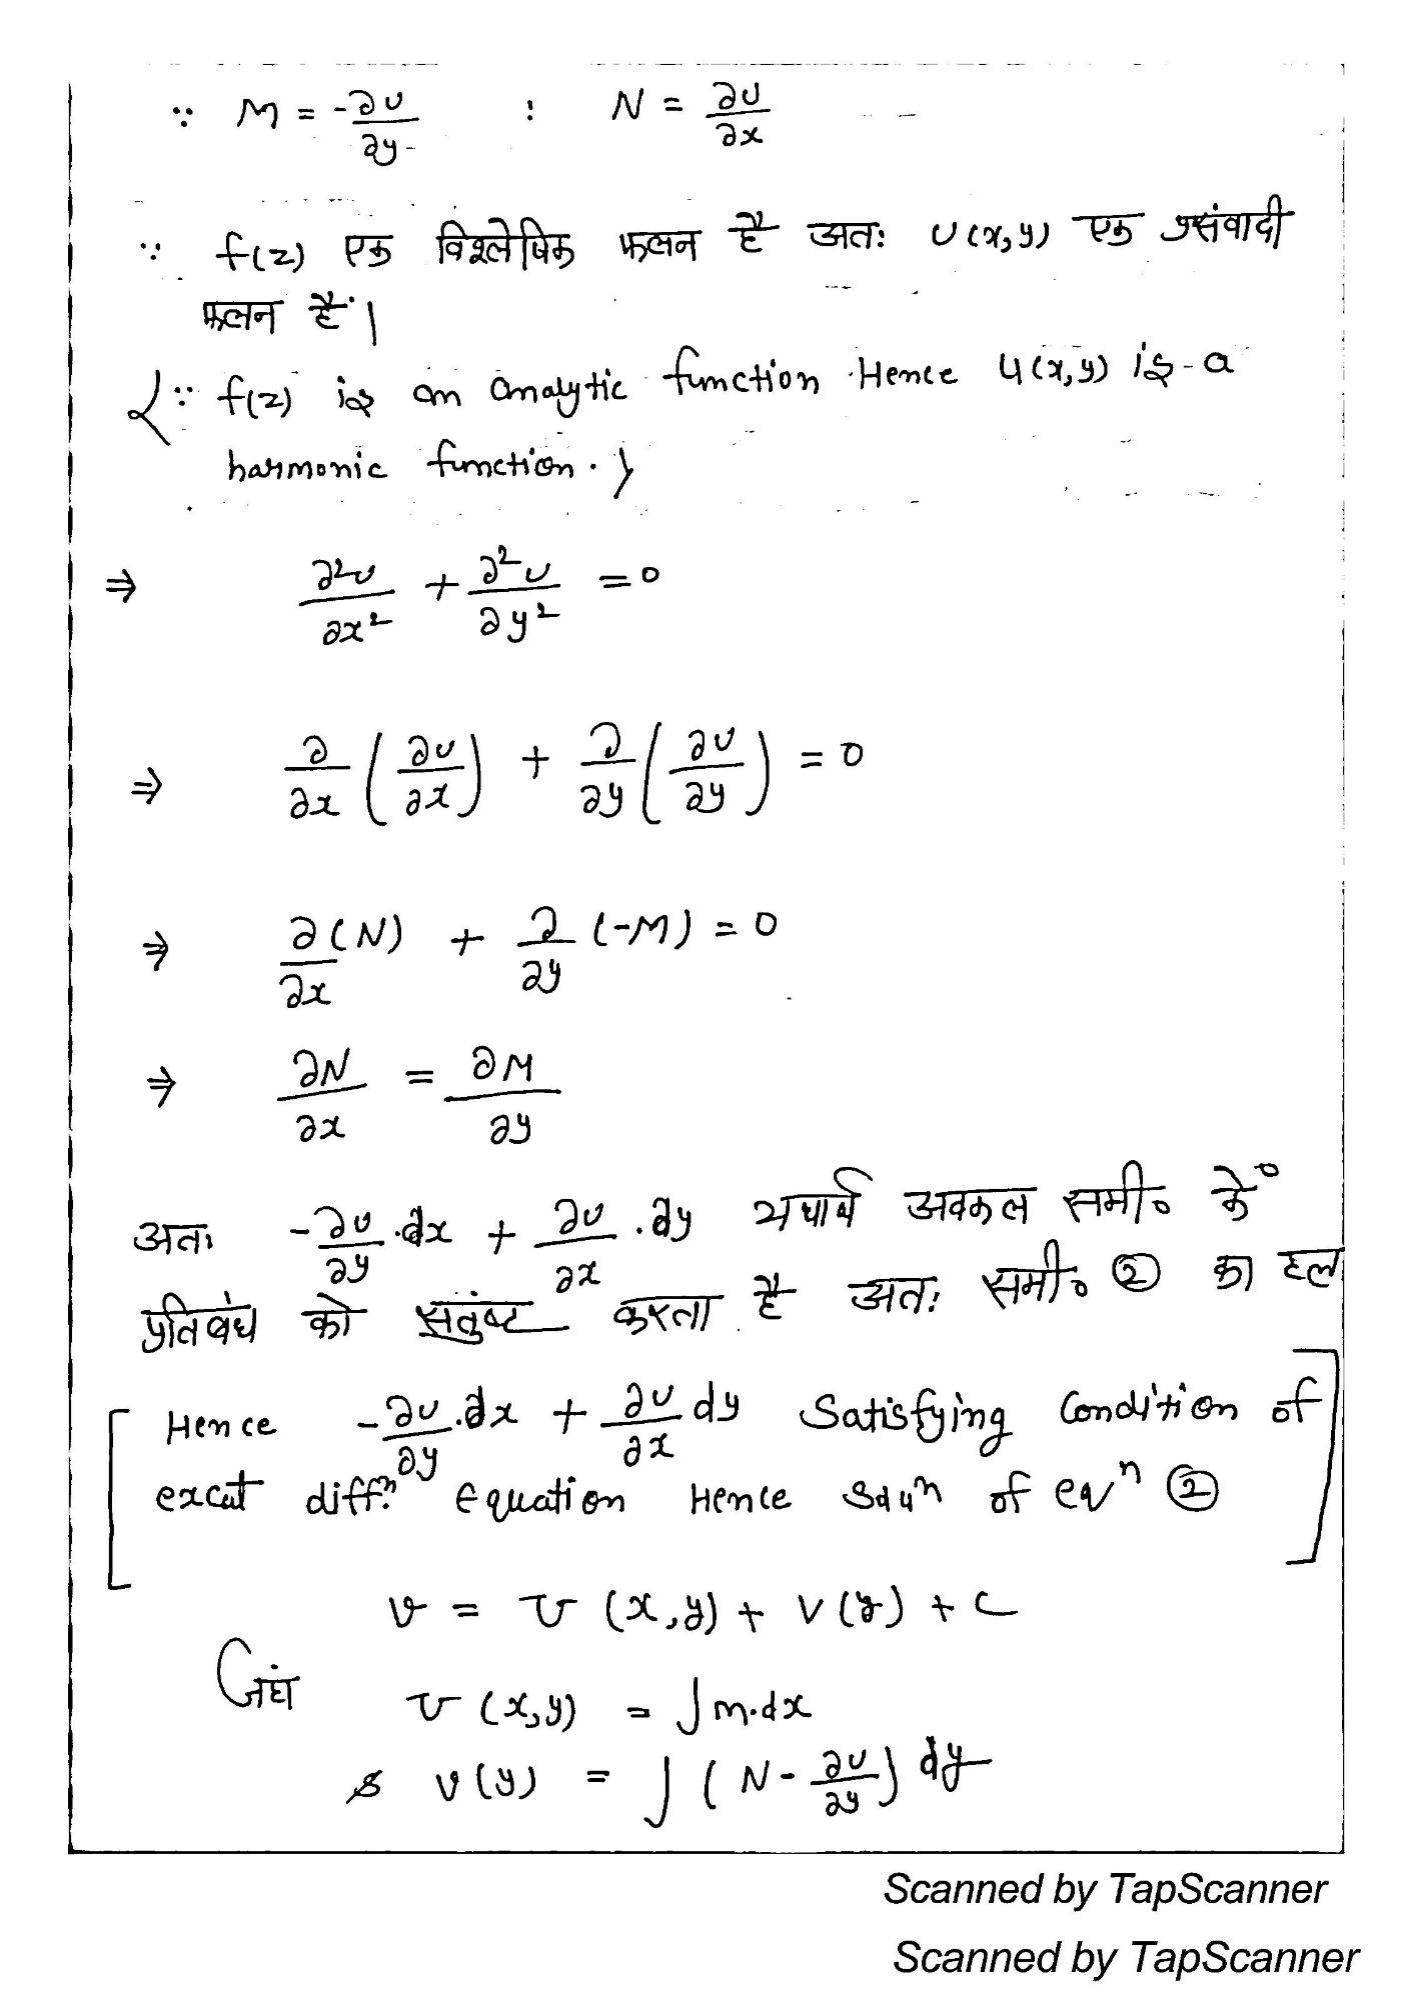 ∵ M = -∂u/∂y : N = ∂u/∂x
∵ f(z) एक विश्लेषिक फलन है अतः u(x,y) एक प्रसंवादी
फलन है।
{∵ f(z) is an analytic function Hence u(x,y) is a
harmonic function.}
⇒ ∂²u/∂x² + ∂²u/∂y² = 0
⇒ ∂/∂x (∂u/∂x) + ∂/∂y (∂u/∂y) = 0
⇒ ∂(N)/∂x + ∂/∂y (-M) = 0
⇒ ∂N/∂x = ∂M/∂y
अतः -∂u/∂y .dx + ∂u/∂x .dy यथार्थ अवकल समी० के
प्रतिबंध को सतुंष्ट करता है अतः समी० ② का हल
[Hence -∂u/∂y .dx + ∂u/∂x dy Satisfying Condition of
excat diff.ⁿ Equation Hence Soluⁿ of eqⁿ ②]
v = U (x,y) + V(y) + c
जंहा U (x,y) = ∫m.dx
& v(y) = ∫(N - ∂U/∂y) dy
Scanned by TapScanner
Scanned by TapScanner